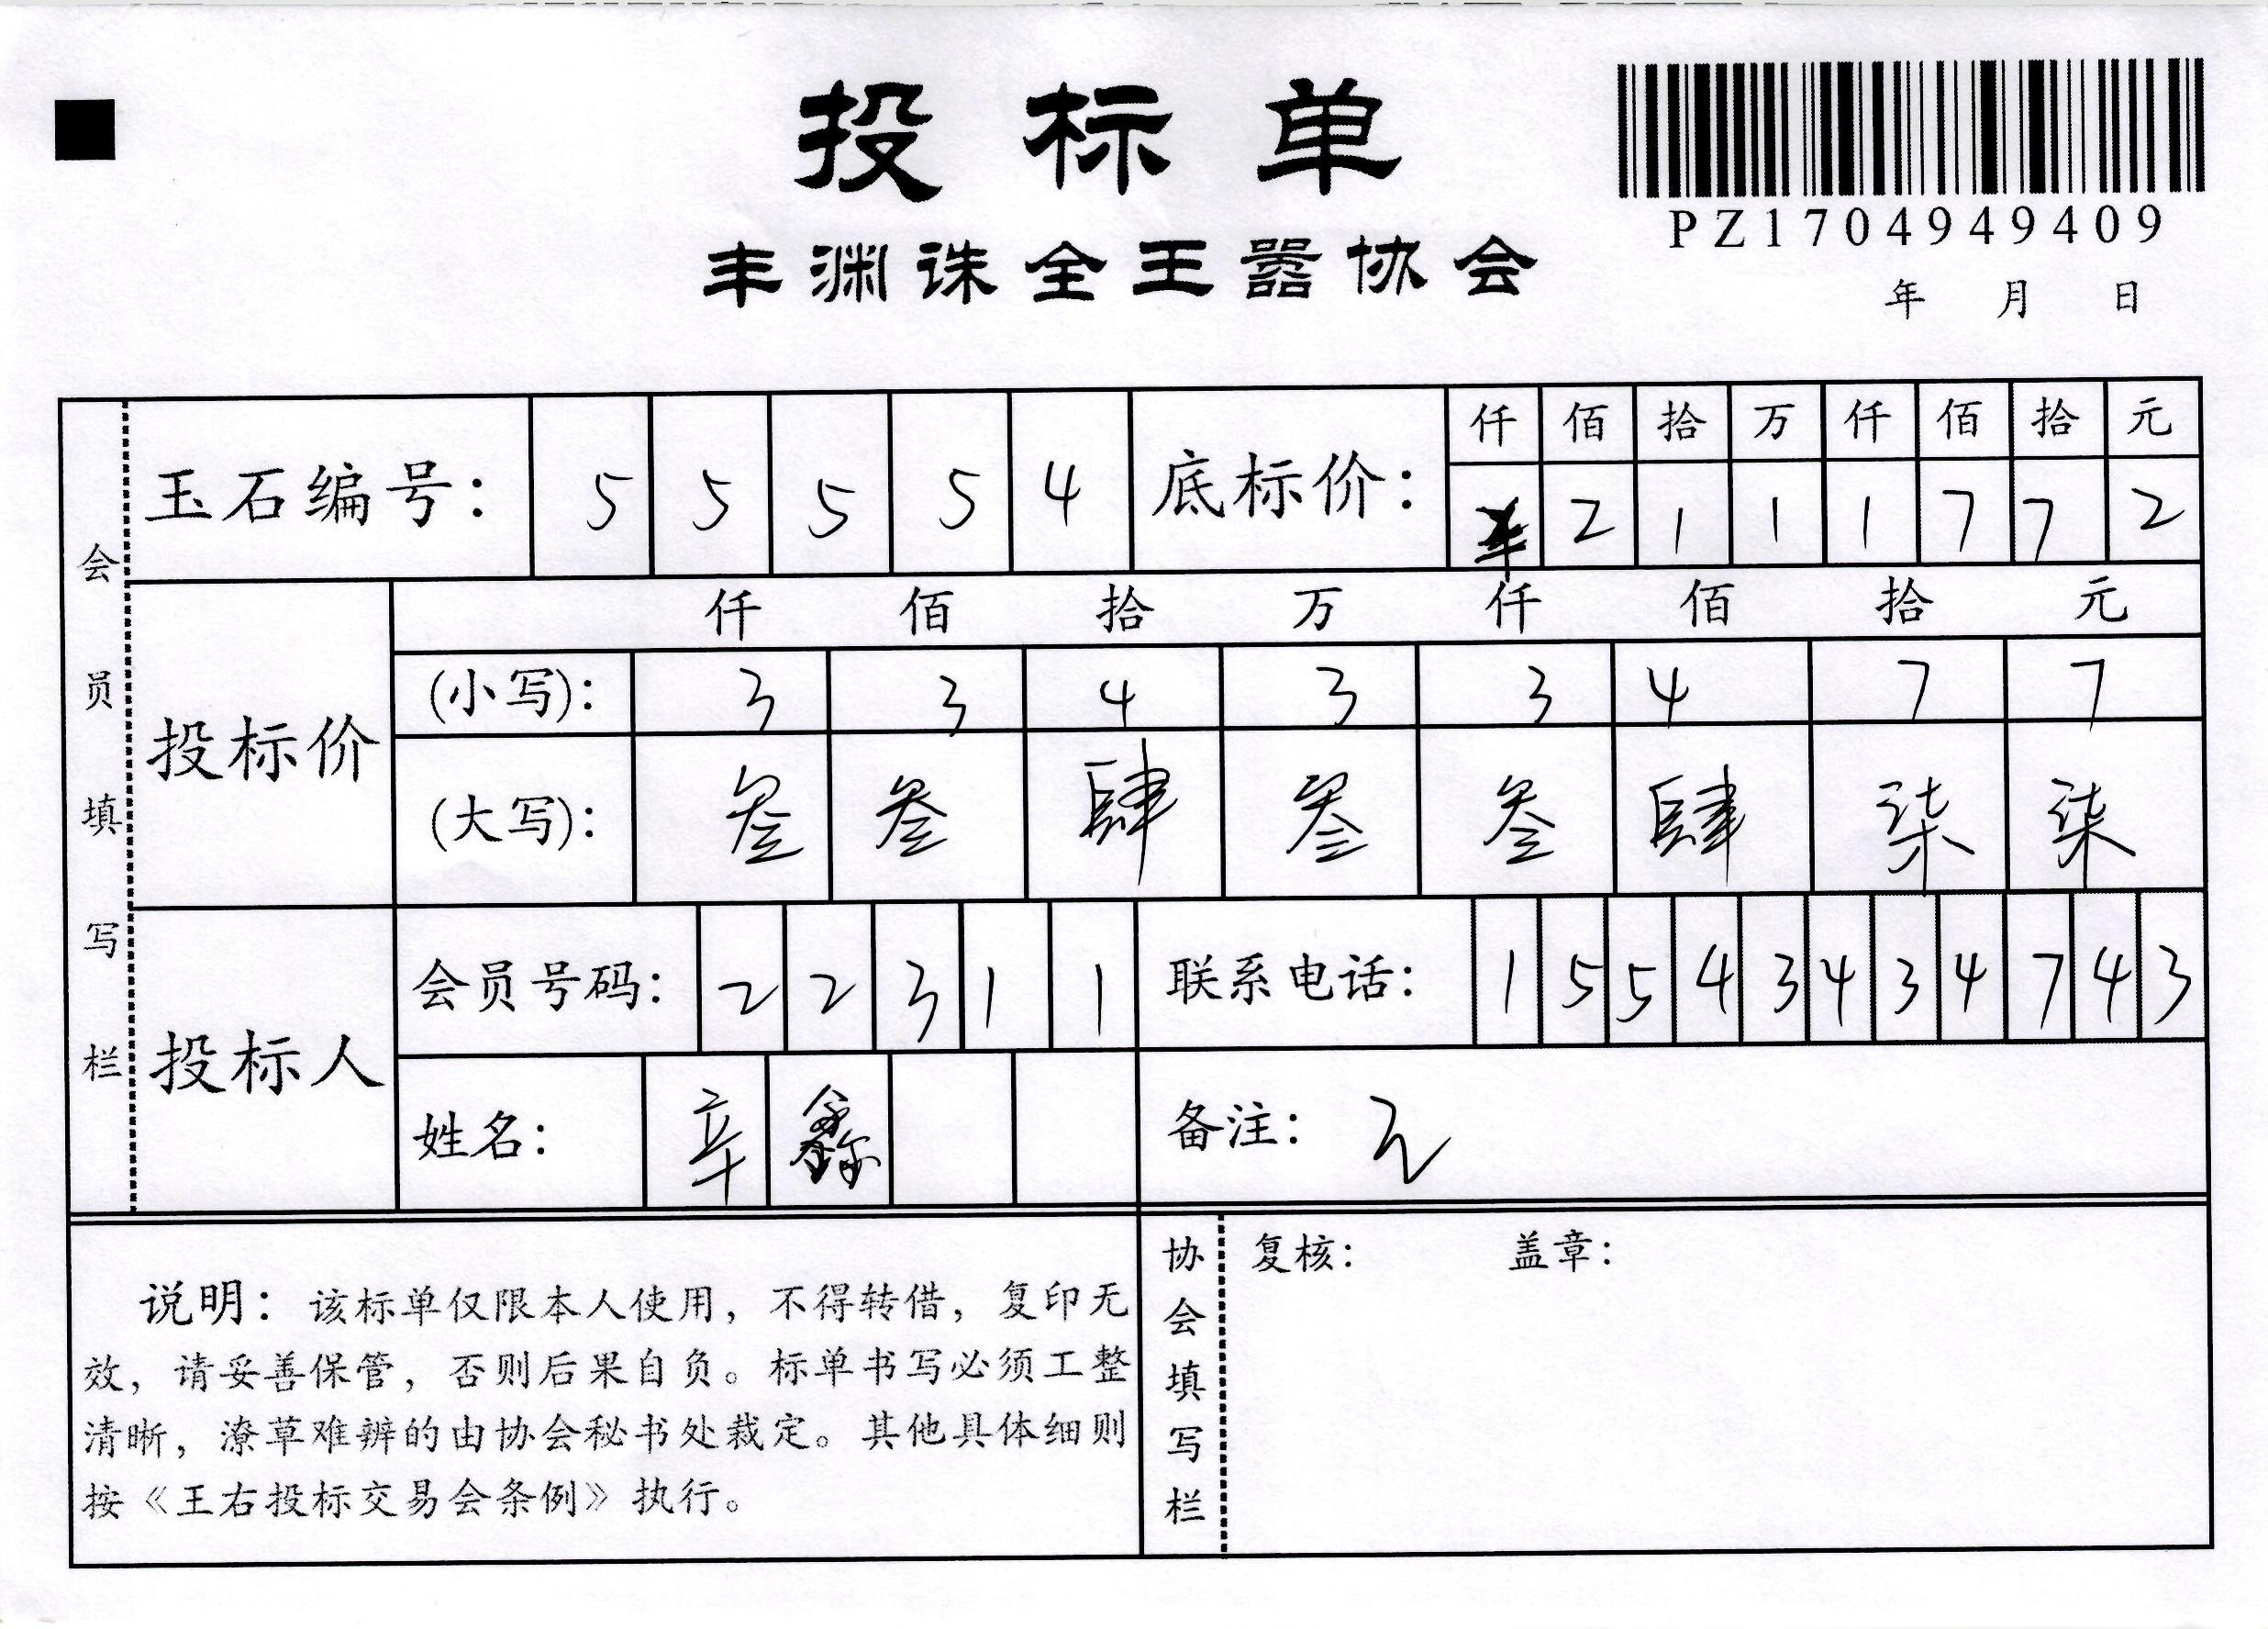 投标单
PZ1704949409
丰渊诛全王嚣协会
年 月 日
会员填写栏
玉石编号: 5 5 5 5 4
底标价: 仟 佰 拾 万 仟 佰 拾 元
2 1 1 1 7 7 2
投标价
仟 佰 拾 万 仟 佰 拾 元
(小写): 3 3 4 3 3 4 7 7
(大写): 叁 叁 肆 叁 叁 肆 柒 柒
投标人
会员号码: 2 2 3 1 1
联系电话: 1 5 5 4 3 4 3 4 7 4 3
姓名: 辛 鑫
备注: 无
说明: 该标单仅限本人使用, 不得转借, 复印无
效, 请妥善保管, 否则后果自负。标单书写必须工整
清晰, 潦草难辨的由协会秘书处裁定。其他具体细则
按《王右投标交易会条例》执行。
协会填写栏
复核: 盖章: